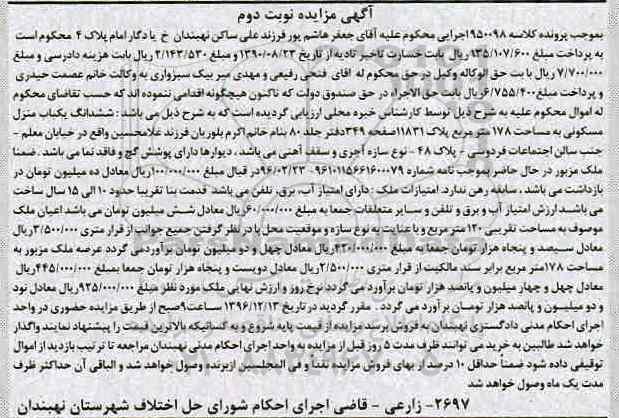 آگهی مزایده نوبت دوم
بموجب پرونده کلاسه ۹۵۰۰۹۸ اجرایی محکوم علیه آقای جعفر هاشم پور فرزند علی ساکن نهبندان خ یادگار امام پلاک ۴ محکوم است
به پرداخت مبلغ ۹۳۵/۱۰۷/۶۰۰ ریال بابت خسارت تاخیر تادیه از تاریخ ۱۳۹۰/۰۸/۲۳ و مبلغ ۲/۱۴۳/۵۳۰ ریال بابت هزینه دادرسی و مبلغ
۷/۷۰۰/۰۰۰ ریال بابت حق الوکاله وکیل در حق محکوم له آقای فتحی رفیعی و مهدی میر بیک سبزواری به وکالت خانم عصمت حیدری
و پرداخت مبلغ ۶/۷۵۵/۴۰۰ ریال بابت حق الاجراء در حق صندوق دولت که تاکنون هیچگونه اقدامی ننموده اند که حسب تقاضای محکوم
له اموال محکوم علیه به شرح ذیل توسط کارشناس خبره محلی ارزیابی گردیده است که به شرح ذیل می باشد : ششدانگ یکباب منزل
مسکونی به مساحت ۱۷۸ متر مربع پلاک ۱۱۸۳۱ صفحه ۳۴۹ دفتر جلد ۸۰ بنام خانم اکرم بلوریان فرزند غلامحسین واقع در خیابان معلم -
جنب سالن اجتماعات فردوسی - پلاک ۴۸ - نوع سازه آجری و سقف آهنی می باشد ، دیوارها دارای پوشش گچ و فاقد نما می باشد . ضمنا
ملک مزبور در حال حاضر بموجب نامه شماره ۹۶۱۰۱۱۵۶۶۱۶۰۰۰۷۹ - ۹۶/۰۲/۲۳ در قبال مبلغ ۱۰۰/۰۰۰/۰۰۰ ریال معادل ده میلیون تومان در
بازداشت می باشد ، سابقه رهن ندارد. امتیازات ملک : دارای امتیاز آب، برق، تلفن می باشد قدمت بنا تقریبا حدود ۱۰ الی ۱۵ سال ساخت
می باشد ارزش امتیاز آب و برق و تلفن و سایر متعلقات جمعا به مبلغ ۶۰/۰۰۰/۰۰۰ ریال معادل شش میلیون تومان می باشد اعیان ملک
موصوف به مساحت تقریبی ۱۲۰ متر مربع و با عنایت به نوع سازه و موقعیت محل با در نظر گرفتن جمیع جوانب از قرار متری ۳/۵۰۰/۰۰۰ ریال
معادل سیصد و پنجاه هزار تومان جمعا به مبلغ ۴۲۰/۰۰۰/۰۰۰ ریال معادل چهل و دو میلیون تومان برآورد می گردد عرصه ملک مزبور به
مساحت ۱۷۸ متر مربع برابر سند مالکیت از قرار متری ۲/۵۰۰/۰۰۰ ریال معادل دویست و پنجاه هزار تومان جمعا بمبلغ ۴۴۵/۰۰۰/۰۰۰ ریال
معادل چهل و چهار میلیون و پانصد هزار تومان برآورد می گردد نرخ روز و ارزش نهایی ملک مورد نظر مبلغ ۹۲۵/۰۰۰/۰۰۰ ریال معادل نود
و دو میلیون و پانصد هزار تومان برآورد می گردد . مقرر گردید در تاریخ ۱۳۹۶/۱۲/۱۳ ساعت ۹ صبح از طریق مزایده حضوری در واحد
اجرای احکام مدنی دادگستری نهبندان به فروش برسد مزایده از قیمت پایه شروع و به کسانیکه بالاترین قیمت را پیشنهاد نمایند واگذار
خواهد شد طالبین به خرید می توانند ظرف مدت ۵ روز قبل از مزایده به واحد اجرای احکام مدنی نهبندان مراجعه تا ترتیب بازدید از اموال
توقیفی داده شود ضمنا حداقل ۱۰ درصد از بهای فروش مزایده نقدا و فی المجلس از برنده وصول خواهد شد و الباقی آن حداکثر ظرف
مدت یک ماه وصول خواهد شد
۲۶۹۷- زارعی - قاضی اجرای احکام شورای حل اختلاف شهرستان نهبندان